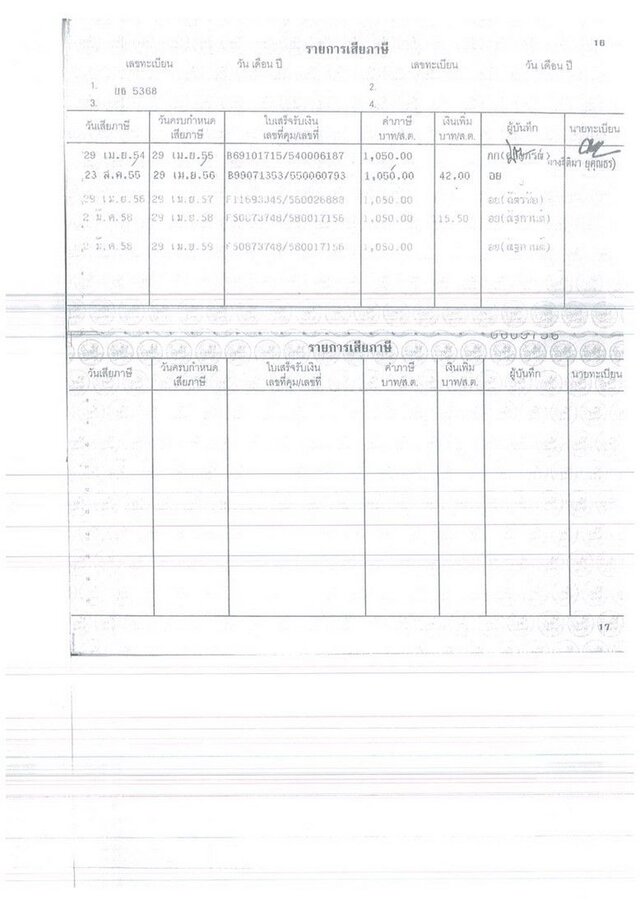 16
รายการเสียภาษี
เลขทะเบียน วัน เดือน ปี เลขทะเบียน วัน เดือน ปี
1. ยธ 5368 2.
3. 4.
วันเสียภาษี วันครบกำหนดเสียภาษี ใบเสร็จรับเงิน เลขที่คุม/เลขที่ ค่าภาษี บาท/ส.ต. เงินเพิ่ม บาท/ส.ต. ผู้บันทึก นายทะเบียน
29 เม.ย.54 29 เม.ย.55 B69101715/540006187 1,050.00
23 ส.ค.55 29 เม.ย.56 B99071353/550060793 1,050.00 42.00 อย
29 เม.ย.56 29 เม.ย.57 F11693345/560026888 1,050.00
2 มี.ค.58 29 เม.ย.58 F50873748/580017156 1,050.00 15.50
2 มี.ค.58 29 เม.ย.59 F50873748/580017156 1,050.00
รายการเสียภาษี
วันเสียภาษี วันครบกำหนดเสียภาษี ใบเสร็จรับเงิน เลขที่คุม/เลขที่ ค่าภาษี บาท/ส.ต. เงินเพิ่ม บาท/ส.ต. ผู้บันทึก นายทะเบียน
17